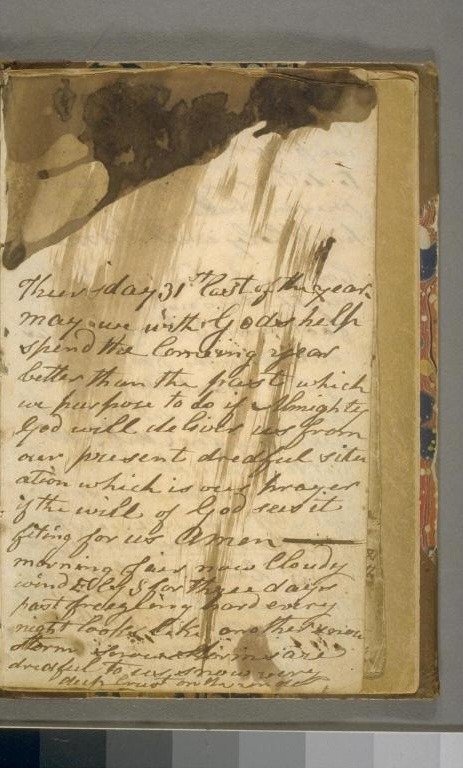 Thursday 31st Last of the year.
may we with Gods help
spend the Comeing year
better than the past which
we purpose to do if Almighty
God will deliver us from
our present dredful situ
ation which is our prayer
if the will of God sees it
fiting for us Amen —
morning fair now Cloudy
wind E by S for three days
past freezing hard every
night looks like another snow
storm Snow Storms are
dredful to us snow very
deep Crust on the snow